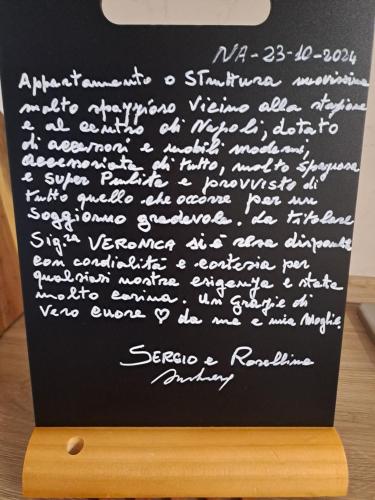 NA - 23-10-2024
Appartamento o Struttura nuovissima
molto spazzioso Vicino alla stazione
e al centro di Napoli, dotato
di accessori e mobili moderni,
accessoriata di tutto, molto spaziosa
e super Pulita e provvisto di
tutto quello che occorre per un
soggiorno gradevole. La titolare
Sig.ra VERONICA si è resa disponibile
con cordialità e cortesia per
qualsiasi nostra esigenza e stata
molto carina. Un Grazie di
vero cuore ♡ da me e mia Moglie.
SERGIO e Rosellina